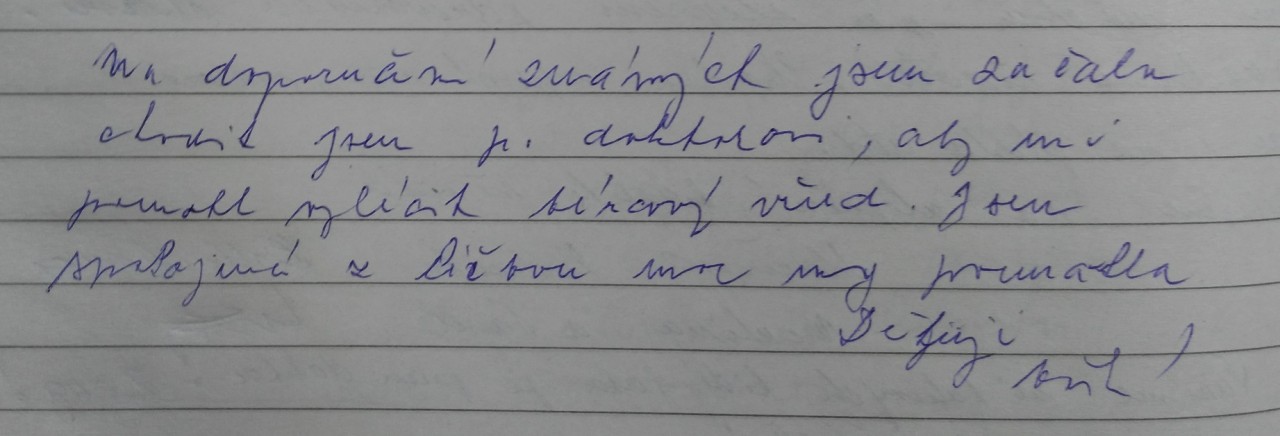 Na doporučení známých jsem začala
chodit jsem p. doktorovi, aby mi
pomohl vyléčit bércový vřed. Jsem
spokojená z léčbou moc my pomohla
Děkuji